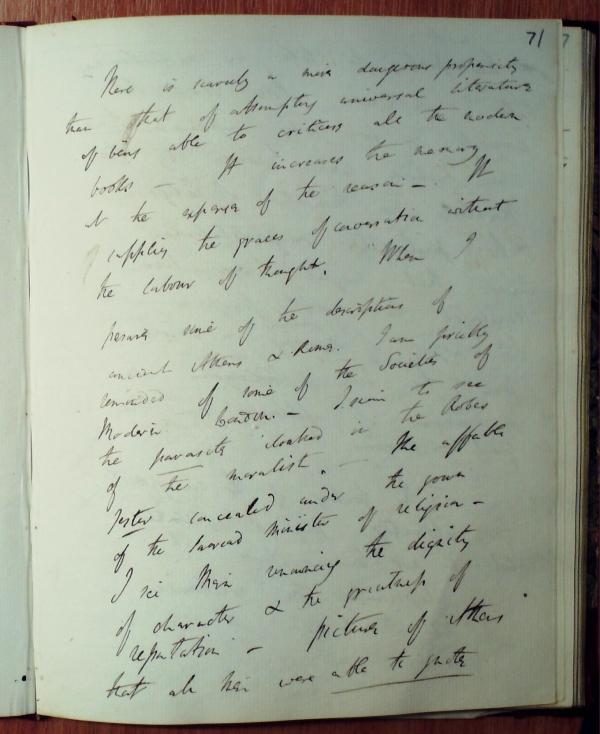 71
There is scarcely a more dangerous propensity
than that of attempting universal literature
of being able to criticess all the modern
books — It increases the memory
at the expense of the reason — It
supplies the graces of conversation without
the labour of thought. When I
peruse some of the descriptions of
ancient Athens & Rome. I am forcibly
reminded of some of the Societies of
Modern London. — I seem to see
the parasite cloaked in the Robes
of the moralist. — The affable
Jester concealed under the gown
of the Sacred Minister of religion —
I see Men renouncing the dignity
of character & the greatness of
reputation — picture of Athens
that all men were able to quote